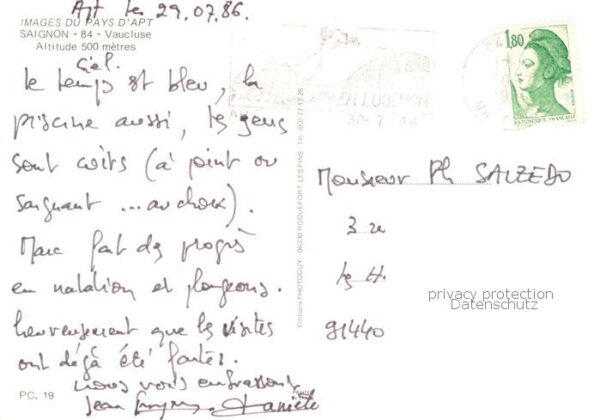 Apt le 29.07.86.
IMAGES DU PAYS D'APT
SAIGNON - 84 - Vaucluse
Altitude 500 mètres
Ciel.
le temps est bleu, la
piscine aussi, les gens
sont cuits (à point ou
saignant ... au choix).
Marc fait des progrès
en natation et plongeons.
heureusement que les visites
ont déjà été faites.
nous vous embrassons
Jean Danièle
PC. 19
Editions PHOTOGUY - 06330 ROQUEFORT LES PINS - Tél. (93) 77.17.26
EN LUBERON
30-7
1,80
REPUBLIQUE FRANÇAISE
Monsieur Ph SALZEDO
3 
les H
91440
privacy protection
Datenschutz